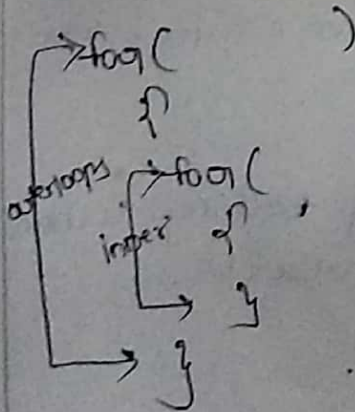 for( )
{
outerloops
for(
inner {
}
}